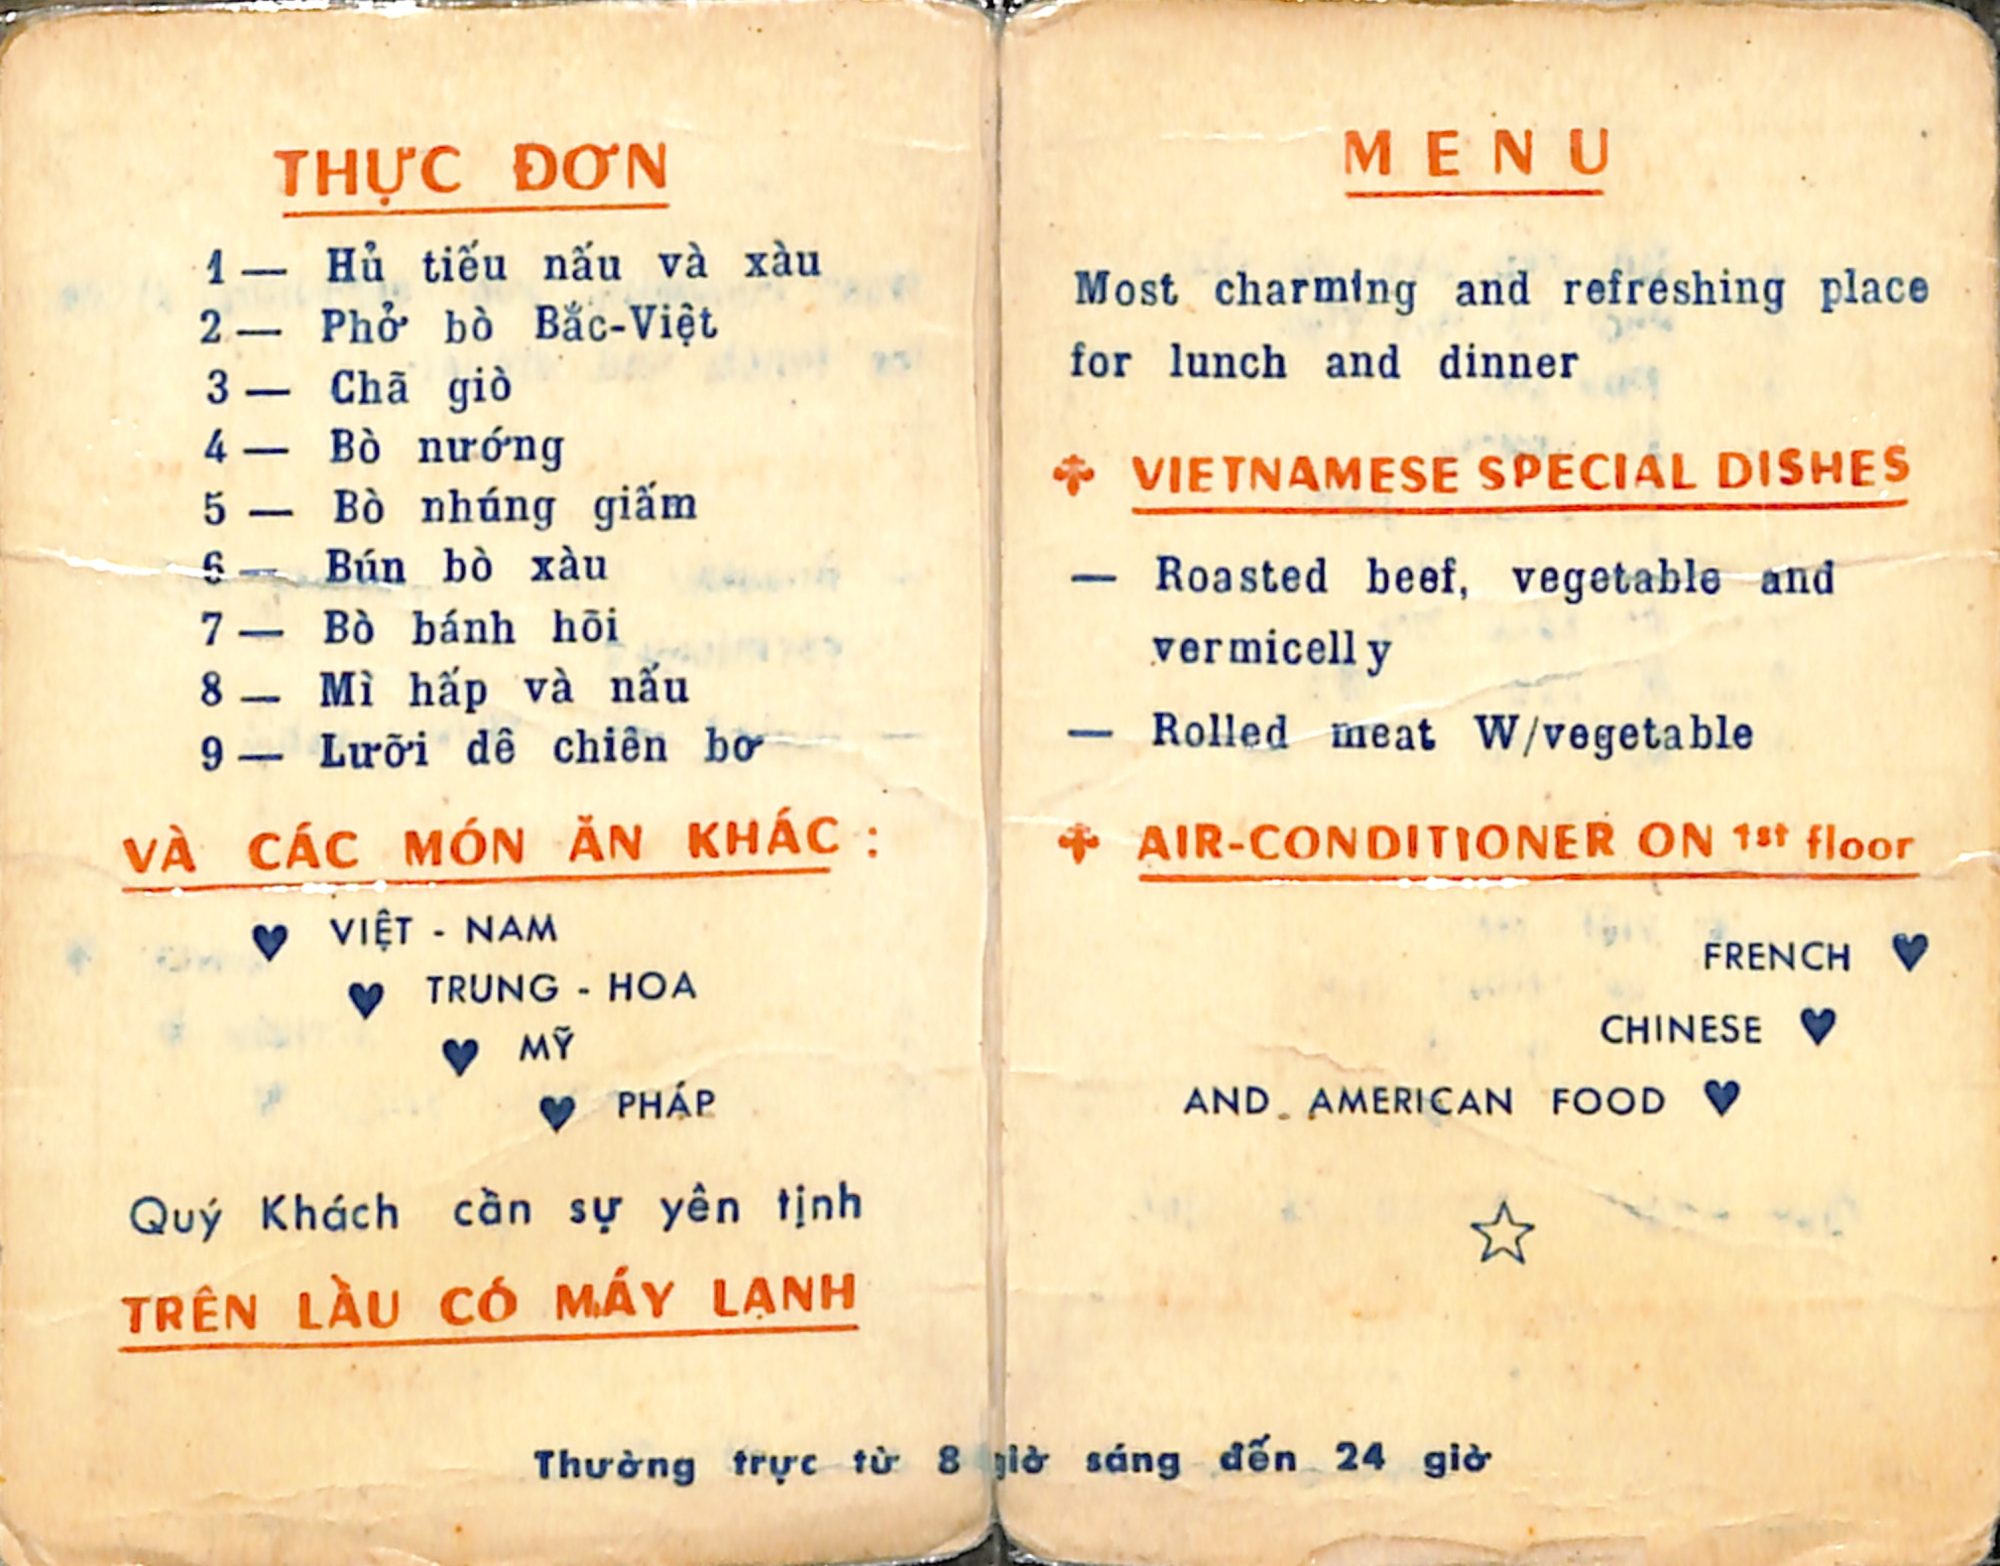 THỰC ĐƠN
1 — Hủ tiếu nấu và xàu
2 — Phở bò Bắc-Việt
3 — Chã giò
4 — Bò nướng
5 — Bò nhúng giấm
6 — Bún bò xàu
7 — Bò bánh hõi
8 — Mì hấp và nấu
9 — Lưỡi dê chiên bơ
VÀ CÁC MÓN ĂN KHÁC :
♥ VIỆT - NAM
♥ TRUNG - HOA
♥ MỸ
♥ PHÁP
Quý Khách cần sự yên tịnh
TRÊN LẦU CÓ MÁY LẠNH
MENU
Most charming and refreshing place
for lunch and dinner
VIETNAMESE SPECIAL DISHES
— Roasted beef, vegetable and
vermicelly
— Rolled meat W/vegetable
AIR-CONDITIONER ON 1st floor
FRENCH ♥
CHINESE ♥
AND AMERICAN FOOD ♥
Thường trực từ 8 giờ sáng đến 24 giờ